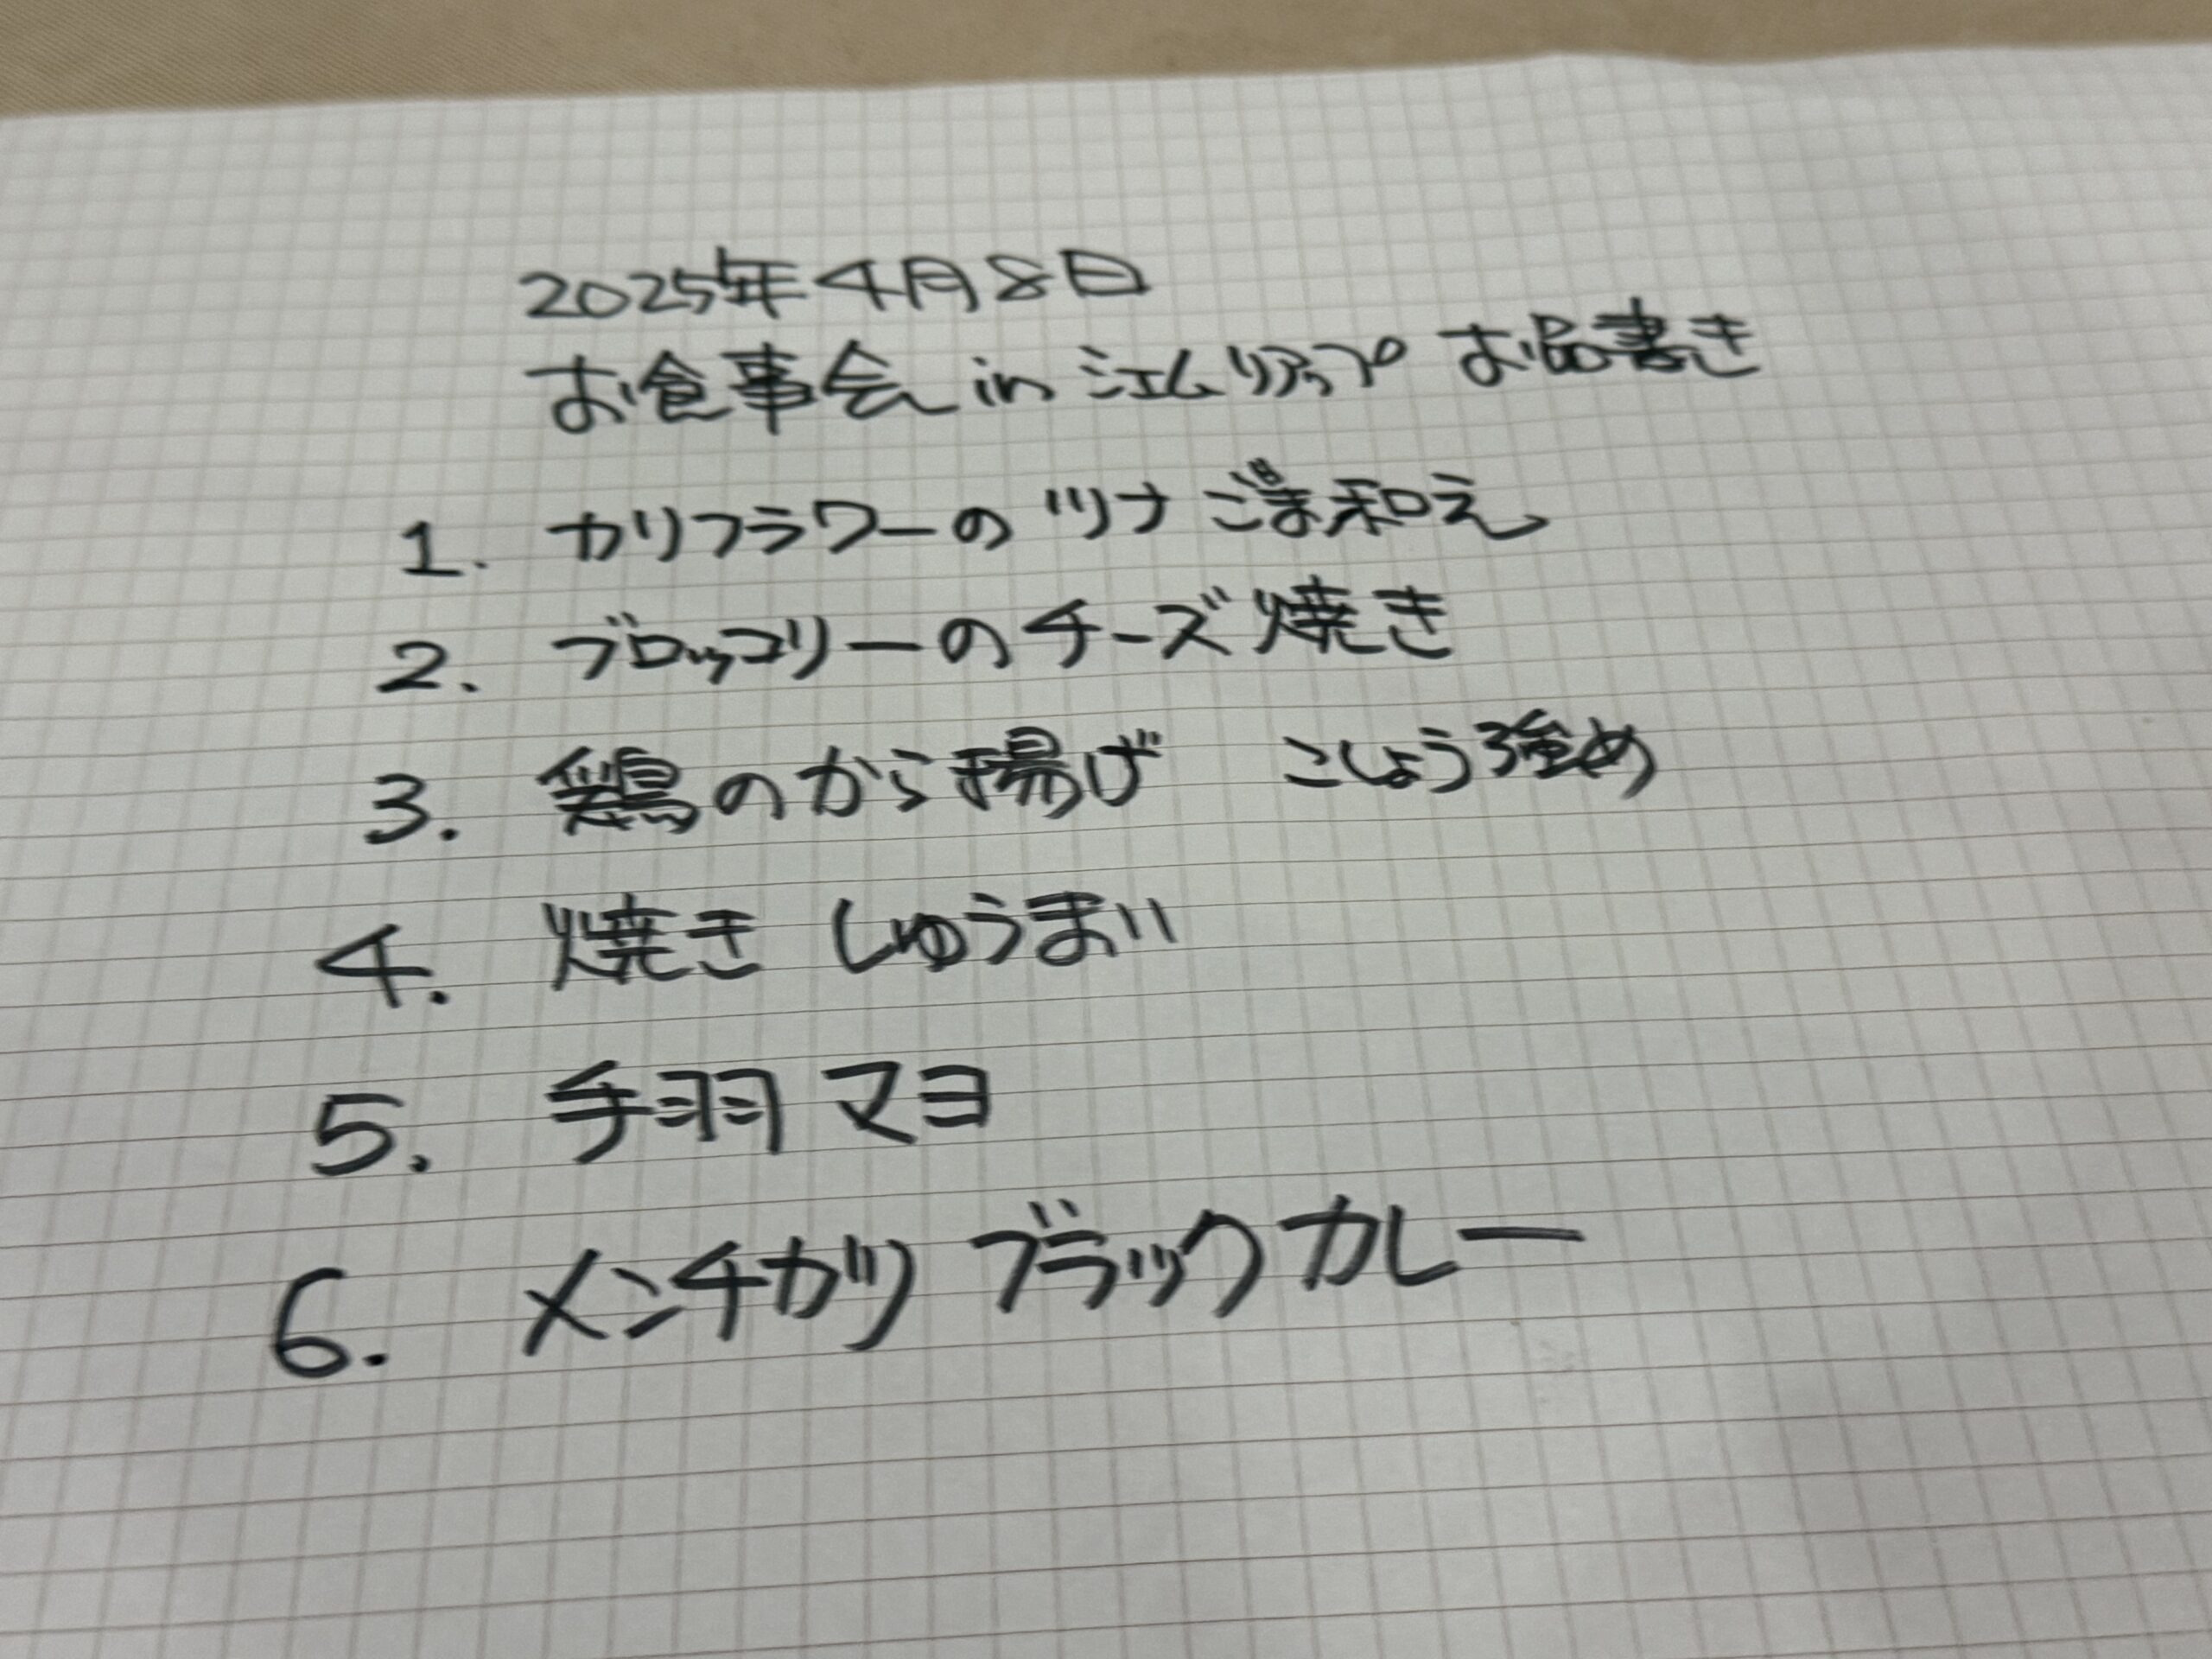 2025年4月8日
お食事会 in シェムリアップ お品書き
1. カリフラワーの ツナ ごま和え
2. ブロッコリーのチーズ焼き
3. 鶏のから揚げ こしょう強め
4. 焼き しゅうまい
5. 手羽 マヨ
6. メンチカツ ブラックカレー